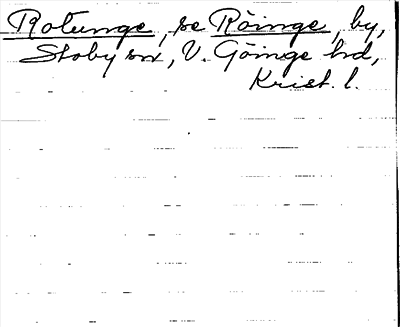 Rotunge, se Röinge, by,
Stoby sn, V. Göinge hd,
Krist. l.